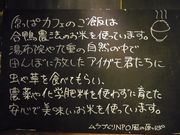 原っぱカフェのご飯は
合鴨農法のお米を使っています。
湯布院や九重の自然の中で
田んぼに放したアイガモ君たちに
虫や草を食べてもらい、
農薬や化学肥料を使わずに育てた
安心で美味しいお米を使っています。
NPO風の原っぱ